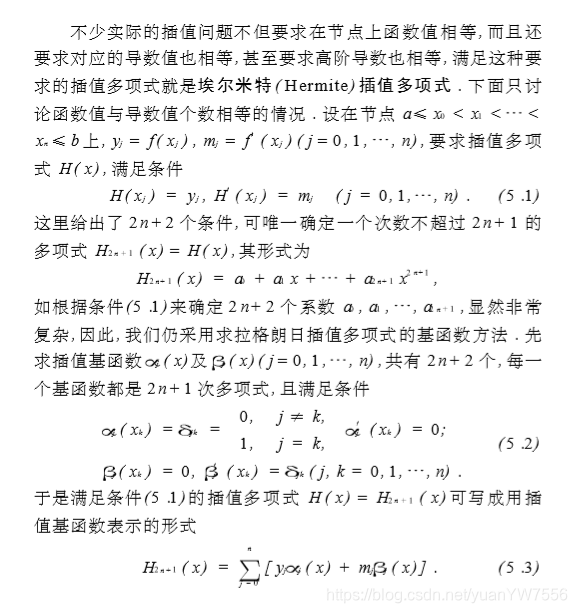 不少实际的插值问题不但要求在节点上函数值相等,而且还
要求对应的导数值也相等,甚至要求高阶导数也相等,满足这种要
求的插值多项式就是埃尔米特(Hermite)插值多项式.下面只讨
论函数值与导数值个数相等的情况.设在节点 a≤ x₀ < x₁ < ⋯ <
xₙ ≤ b 上, yⱼ = f(xⱼ), mⱼ = f′(xⱼ)(j=0,1,⋯,n),要求插值多项
式 H(x),满足条件
H(xⱼ) = yⱼ, H′(xⱼ) = mⱼ (j = 0,1,⋯,n). (5.1)
这里给出了 2n+2 个条件,可唯一确定一个次数不超过 2n+1 的
多项式 H₂ₙ₊₁(x) = H(x),其形式为
H₂ₙ₊₁(x) = a₀ + a₁x + ⋯ + a₂ₙ₊₁x²ⁿ⁺¹,
如根据条件(5.1)来确定 2n+2 个系数 a₀, a₁, ⋯, a₂ₙ₊₁,显然非常
复杂,因此,我们仍采用求拉格朗日插值多项式的基函数方法.先
求插值基函数 αⱼ(x)及 βⱼ(x)(j=0,1,⋯,n),共有 2n+2 个,每一
个基函数都是 2n+1 次多项式,且满足条件
0, j ≠ k,
αⱼ(xₖ) = δⱼₖ = αⱼ′(xₖ) = 0;
1, j = k,
(5.2)
βⱼ(xₖ) = 0, βⱼ′(xₖ) = δⱼₖ (j,k = 0,1,⋯,n).
于是满足条件(5.1)的插值多项式 H(x) = H₂ₙ₊₁(x)可写成用插
值基函数表示的形式
H₂ₙ₊₁(x) = ∑ⱼ₌₀ⁿ [yⱼαⱼ(x) + mⱼβⱼ(x)]. (5.3)
https://blog.csdn.net/yuanYW7556